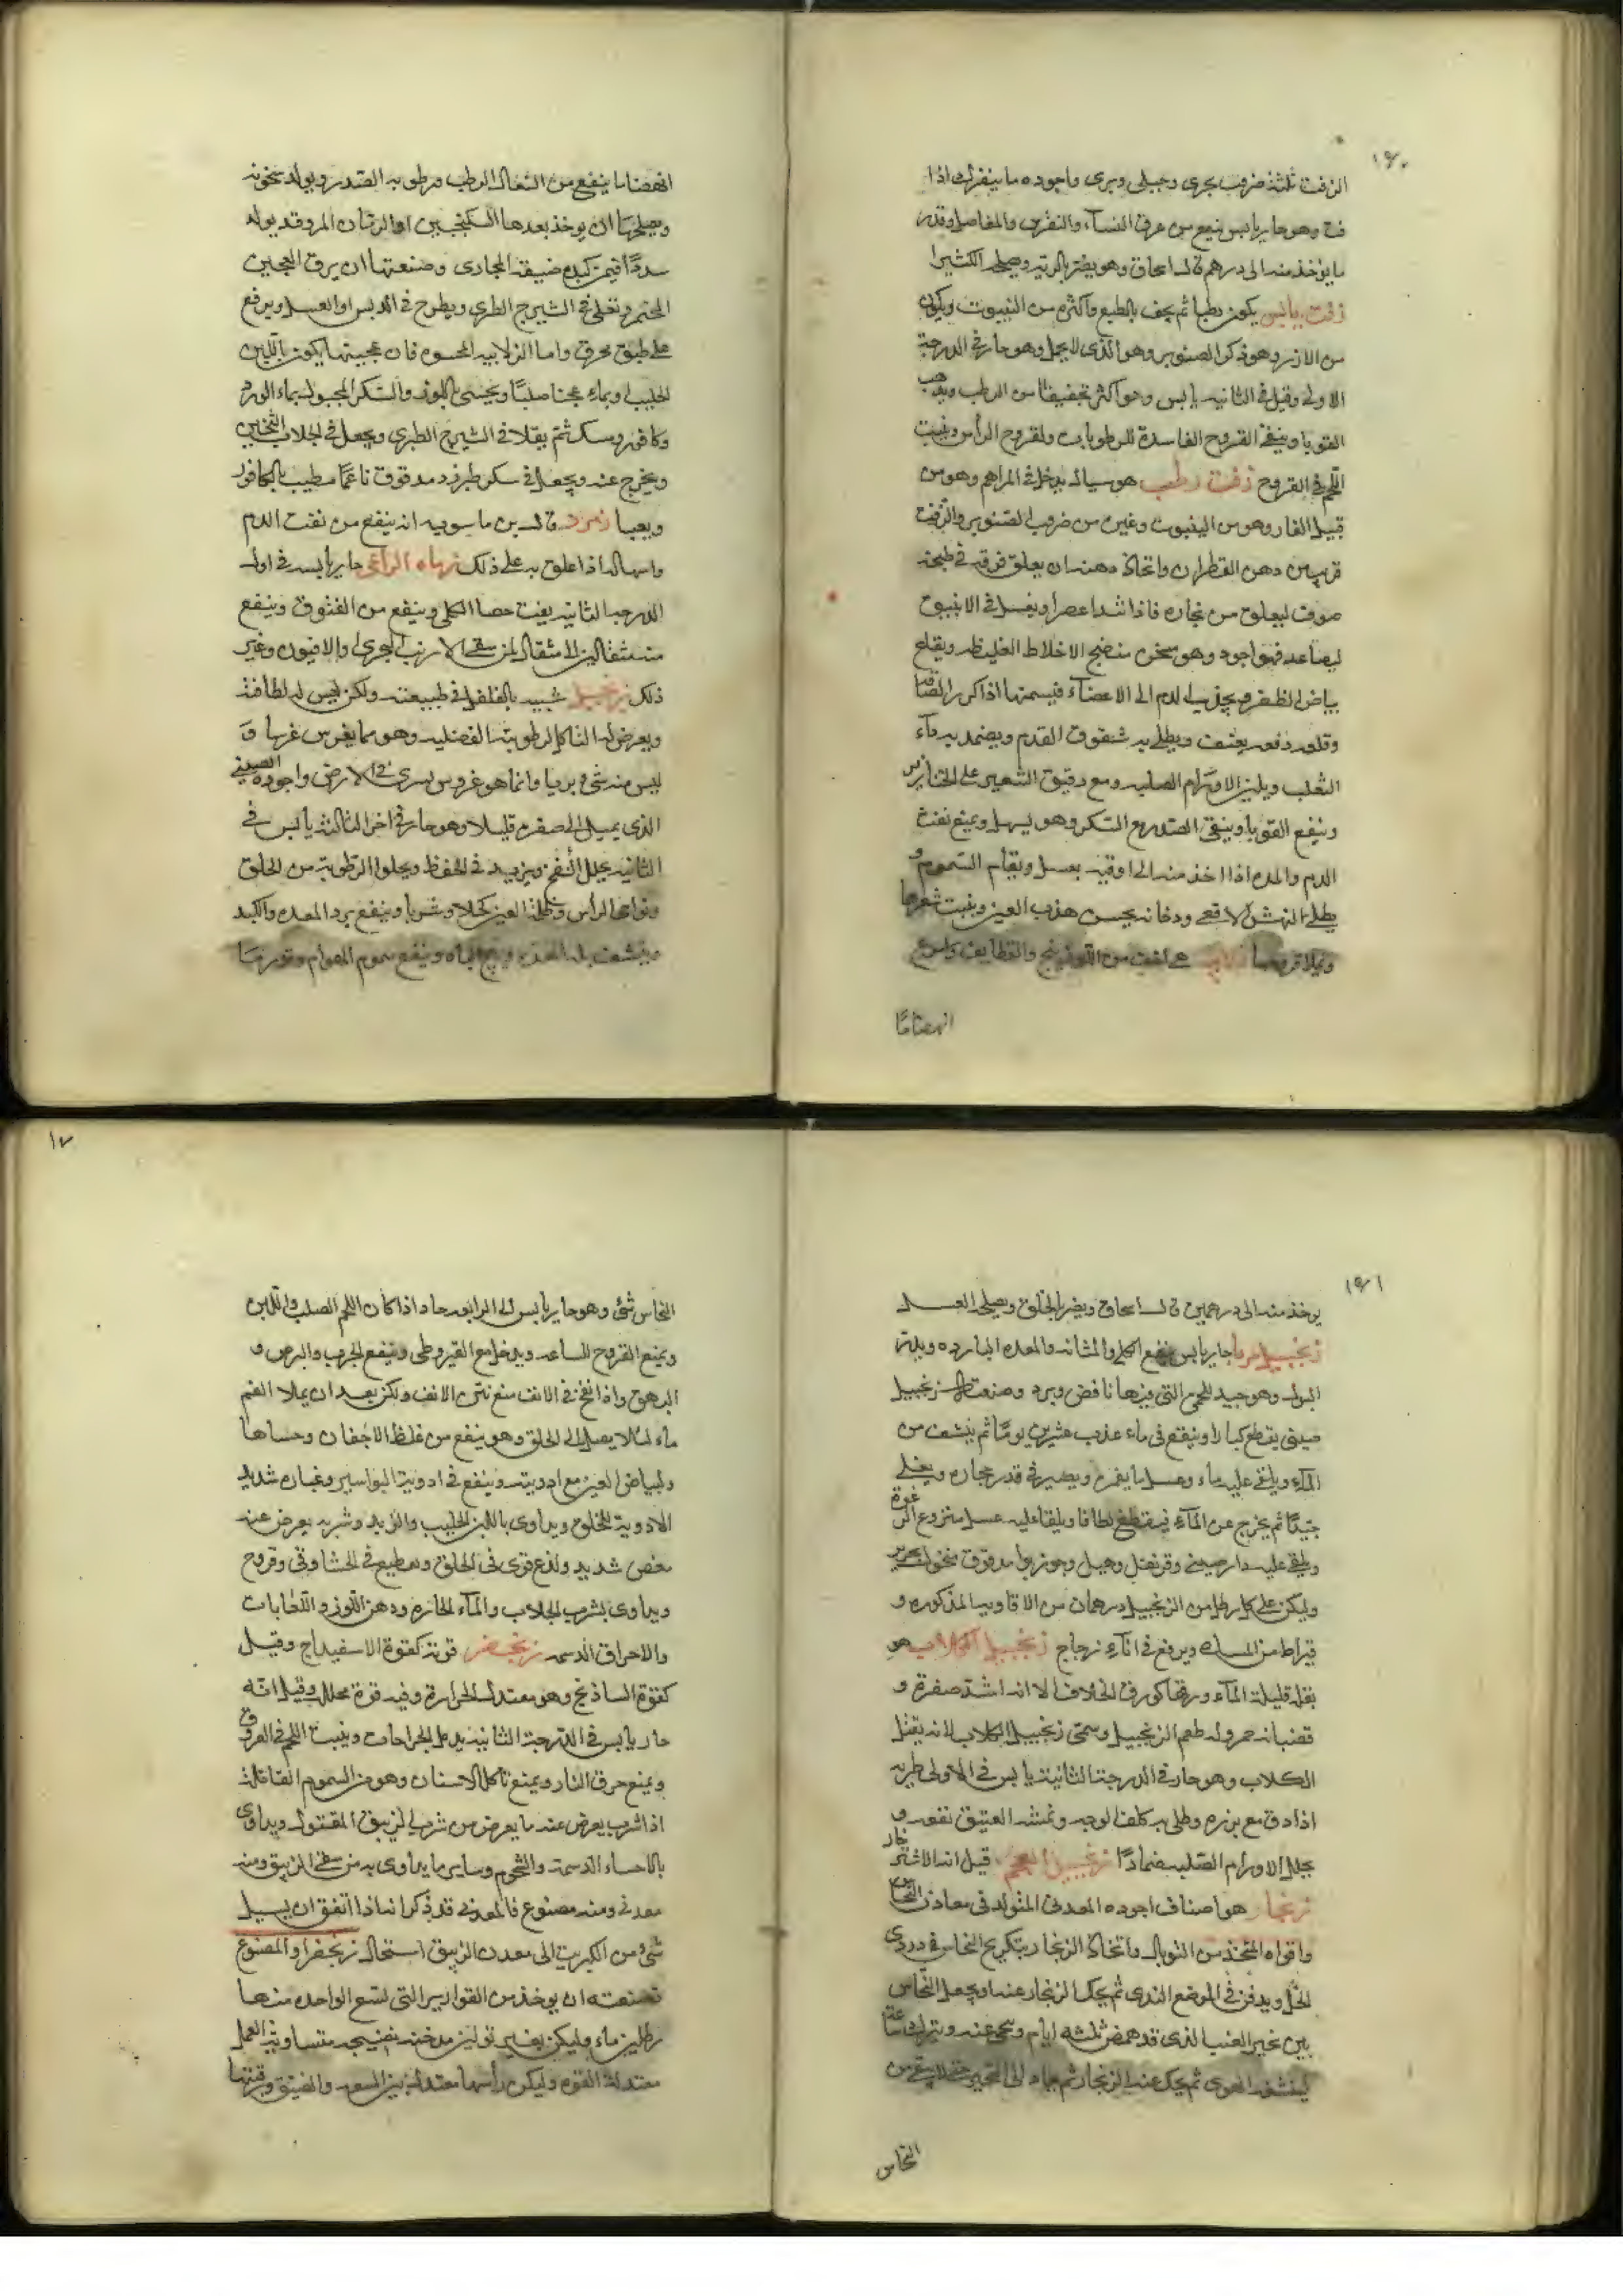 ١٦٠
الزفت ثلثة ضروب بحرى وجبلى وبرى واجوده ما ينفرك اذا
فت وهو حار يابس ينفع من عرق النساء والنقرس والمفاصل وقدر
ما يوخذ منه الى درهم قال اسحاق وهو يضر بالرية ويصلحه الكثيرا
زفت يابس يكون رطبا ثم يجف بالطبع واكثره من الينبوت ويكون
من الارز وهو ذكر الصنوبر وهو الذى لا يحمل وهو حار فى الدرجة
الاولى وقيل فى الثانيه يابس وهو اكثر تجفيفا من الرطب ويذهب
القوبا وينفع القروح الفاسدة للرطوبات ولقروح الرأس وينبت
اللحم فى القروح زفت رطب هو سيال يدخل فى المراهم وهو من
قبيل القار وهو من الينبوت وغيره من ضروب الصنوبر والزفت
قريب من دهن القطران واتخاذ دهنه ان يعلق فوقه فى طبخه
صوف ليعلق من بخاره فاذا تندا عصر او يغسل فى الانبيق
ليصاعد فهو اجود وهو مسخن منضج الاخلاط الغليظه ويقلع
بياض الظفر ويجذب الدم الى الاعضآء فيسمنها اذا كرر الصاقه
وقلعه دفعه بعنف ويطلى به شقوق القدم ويضمد به دآء
الثعلب ويلين الاورام الصلبه ومع دقيق الشعير على الخنازير
وينفع القوبا وينقى الصدر مع السكر وهو يسهل ويمنع نفث
الدم والمده اذا اخذ منه الى اوقيه بعسل ويقاوم السموم و
يطلى على نهش الافعى ودخانه يحسن هذب العين وينبت شعرها
ويملا قروحها زلابيه هى اخف من اللوزينج والقطايف واسرع
انهضاما
انهضاما ينفع من السعال الرطب ورطوبه الصدر ويولد سخونه
ويصلحها ان يوخذ بعدها السكنجبين او الرمان المز وقد يولد
سددا فيمن كبده ضيقه المجارى وصنعتها ان يرق العجين
المختمر وتغلى فى الشيرج الطرى ويطرح فى الدبس او العسل ويرفع
على طبق مخرق واما الزلابيه المحشوه فان عجينها يكون باللبن
الحليب او بماء عجنا صلبا ويحشى باللوز والسكر المجبول بماء الورد
وكافور ومسك ثم يقلا فى الشيرج الطرى ويجعل فى الجلاب الثخين
ويخرج عنه ويجعل فى سكر طبرزد مدقوق ناعما مطيب بالكافور
ويعبا زمرد قال بن ماسويه انه ينفع من نفث الدم
واسهاله اذا علق به على ذلك زماره الراعى حار يابس فى اول
الدرجه الثانيه يفت حصا الكلى وينفع من الفتوق وينفع
منه مثقالين الى مثقال لمن سقى الارنب البحرى والافيون وغير
ذلك زنجبيل شبيه بالفلفل فى طبيعته ولكن ليس له لطافته
ويعرض له التاكل لرطوبته الفضليه وهو مما يغرس غرسا و
ليس منه شئ بريا وانما هو غروس يسرى فى الارض واجوده الصينى
الذى يميل الى صفره قليلا وهو حار فى اخر الثالثه يابس فى
الثانيه يحلل النفخ ويزيد فى الحفظ ويجلوا الرطوبة من الحلق
ونواحى الراس وظلمة العين كحلا وشربا وينفع برد المعده والكبد
وينشف بله المعده ويهيج الباه وينفع سموم الهوام وقدر ما
١٦١
يوخذ منه الى درهمين قال اسحاق ويضر بالحلق ويصلحه العسل
زنجبيل مربا حار يابس ينفع الكلى والمثانه والمعده البارده ويدر
البول وهو جيد للحمى التى فيها نافض وبرد وصنعته زنجبيل
صينى يقطع كبارا وينقع فى ماء عذب عشرين يوما ثم ينشف من
المآء ويلقى عليه ماء وعسل ما يغمره ويصير فى قدر حجاره ويغلى
جيدا ثم يخرج عن المآء فيقطع لطافا ويلقا عليه عسل منزوع الرغوة
ويلقى عليه دارصينى وقرنفل وهيل وجوزبوا مدقوق منخول بحرير
وليكن على كل رطل من الزنجبيل درهمان من الافاويه المذكوره و
قيراط من المسك ويرفع فى انآء زجاج زنجبيل الكلاب هو
بقلة قليلة المآء ورقها كورق الخلاف الا انه اشد صفرة و
قضبانه حمر وله طعم الزنجبيل وسمى زنجبيل الكلاب لانه يقتل
الكلاب وهو حار فى الدرجة الثانية يابس فى الاولى طريه
اذا دق مع بزره وطلى به كلف الوجه ونمشه العتيق نفعه و
يحلل الاورام الصلبه ضمادا زنجبيل العجم قيل انه الاشترغار
زنجار هو اصناف اجوده المعدنى المتولد فى معادن النحاس
واقواه المتخذ من التوبال واتخاذ الزنجار بتكريج النحاس فى دردى
الخل ويدفن فى الموضع الندى ثم يحك الزنجار عنه او يجعل النحاس
بين ثجير العنب الذى قد همض ثلثه ايام وينحى عنه ويترك ساعة
لينشفه الهوى ثم يحك عنه الزنجار ثم يعاد الى الثجير حتى لا يبقى من
النحاس
١٧
النحاس شئ وهو حار يابس الى الرابعه حاد اذا كان اللحم الصلب واللين
ويمنع القروح الساعيه ويدخل مع القيروطى وينفع الجرب والبرص و
البهق واذا نفخ فى الانف منع نتن الانف ولكن بعد ان يملا الفم
ماء لئلا يصل الى الحلق وهو ينفع من غلظ الاجفان وجساها
ولبياض العين مع ادويته وينفع فى ادوية البواسير وغباره شديد
الاذية للحلق ويداوى باللبن الحليب والزبد وشربه يعرض عنه
مغص شديد ولذع قوى فى الحلق وتقطيع فى الحشا وقى وقروح
ويداوى بشرب الجلاب والمآء الحاره ودهن اللوز واللعابات
والامراق الدسمه زنجفر قوته كقوة الاسفيداج وقيل
كقوة الساذنج وهو معتدل الحرارة وفيه قوة محلله وقيل انه
حار يابس فى الدرجة الثانيه يدمل الجراحات وينبت اللحم فى القروح
ويمنع حرق النار ويمنع تاكل الاسنان وهو من السموم القاتلة
اذا شرب يعرض عنه ما يعرض من شرب الزيبق المقتول ويداوى
بالاحساء الدسمة والشحوم وساير ما يداوى به من سقى الزيبق ومنه
معدنى ومنه مصنوع فالمعدنى قد ذكر انه اذا اتفق ان يسيل
شئ من الكبريت الى معدن الزيبق استحال زنجفرا والمصنوع
صنعته ان يوخذ من القوارير التى تسع الواحده منها
رطلين ماء وليكن بغير تولين مدخنه نضيجه متساوية العمل
معتدلة القوه وليكن رأسها معتدله بين السعه والضيق ورقبتها